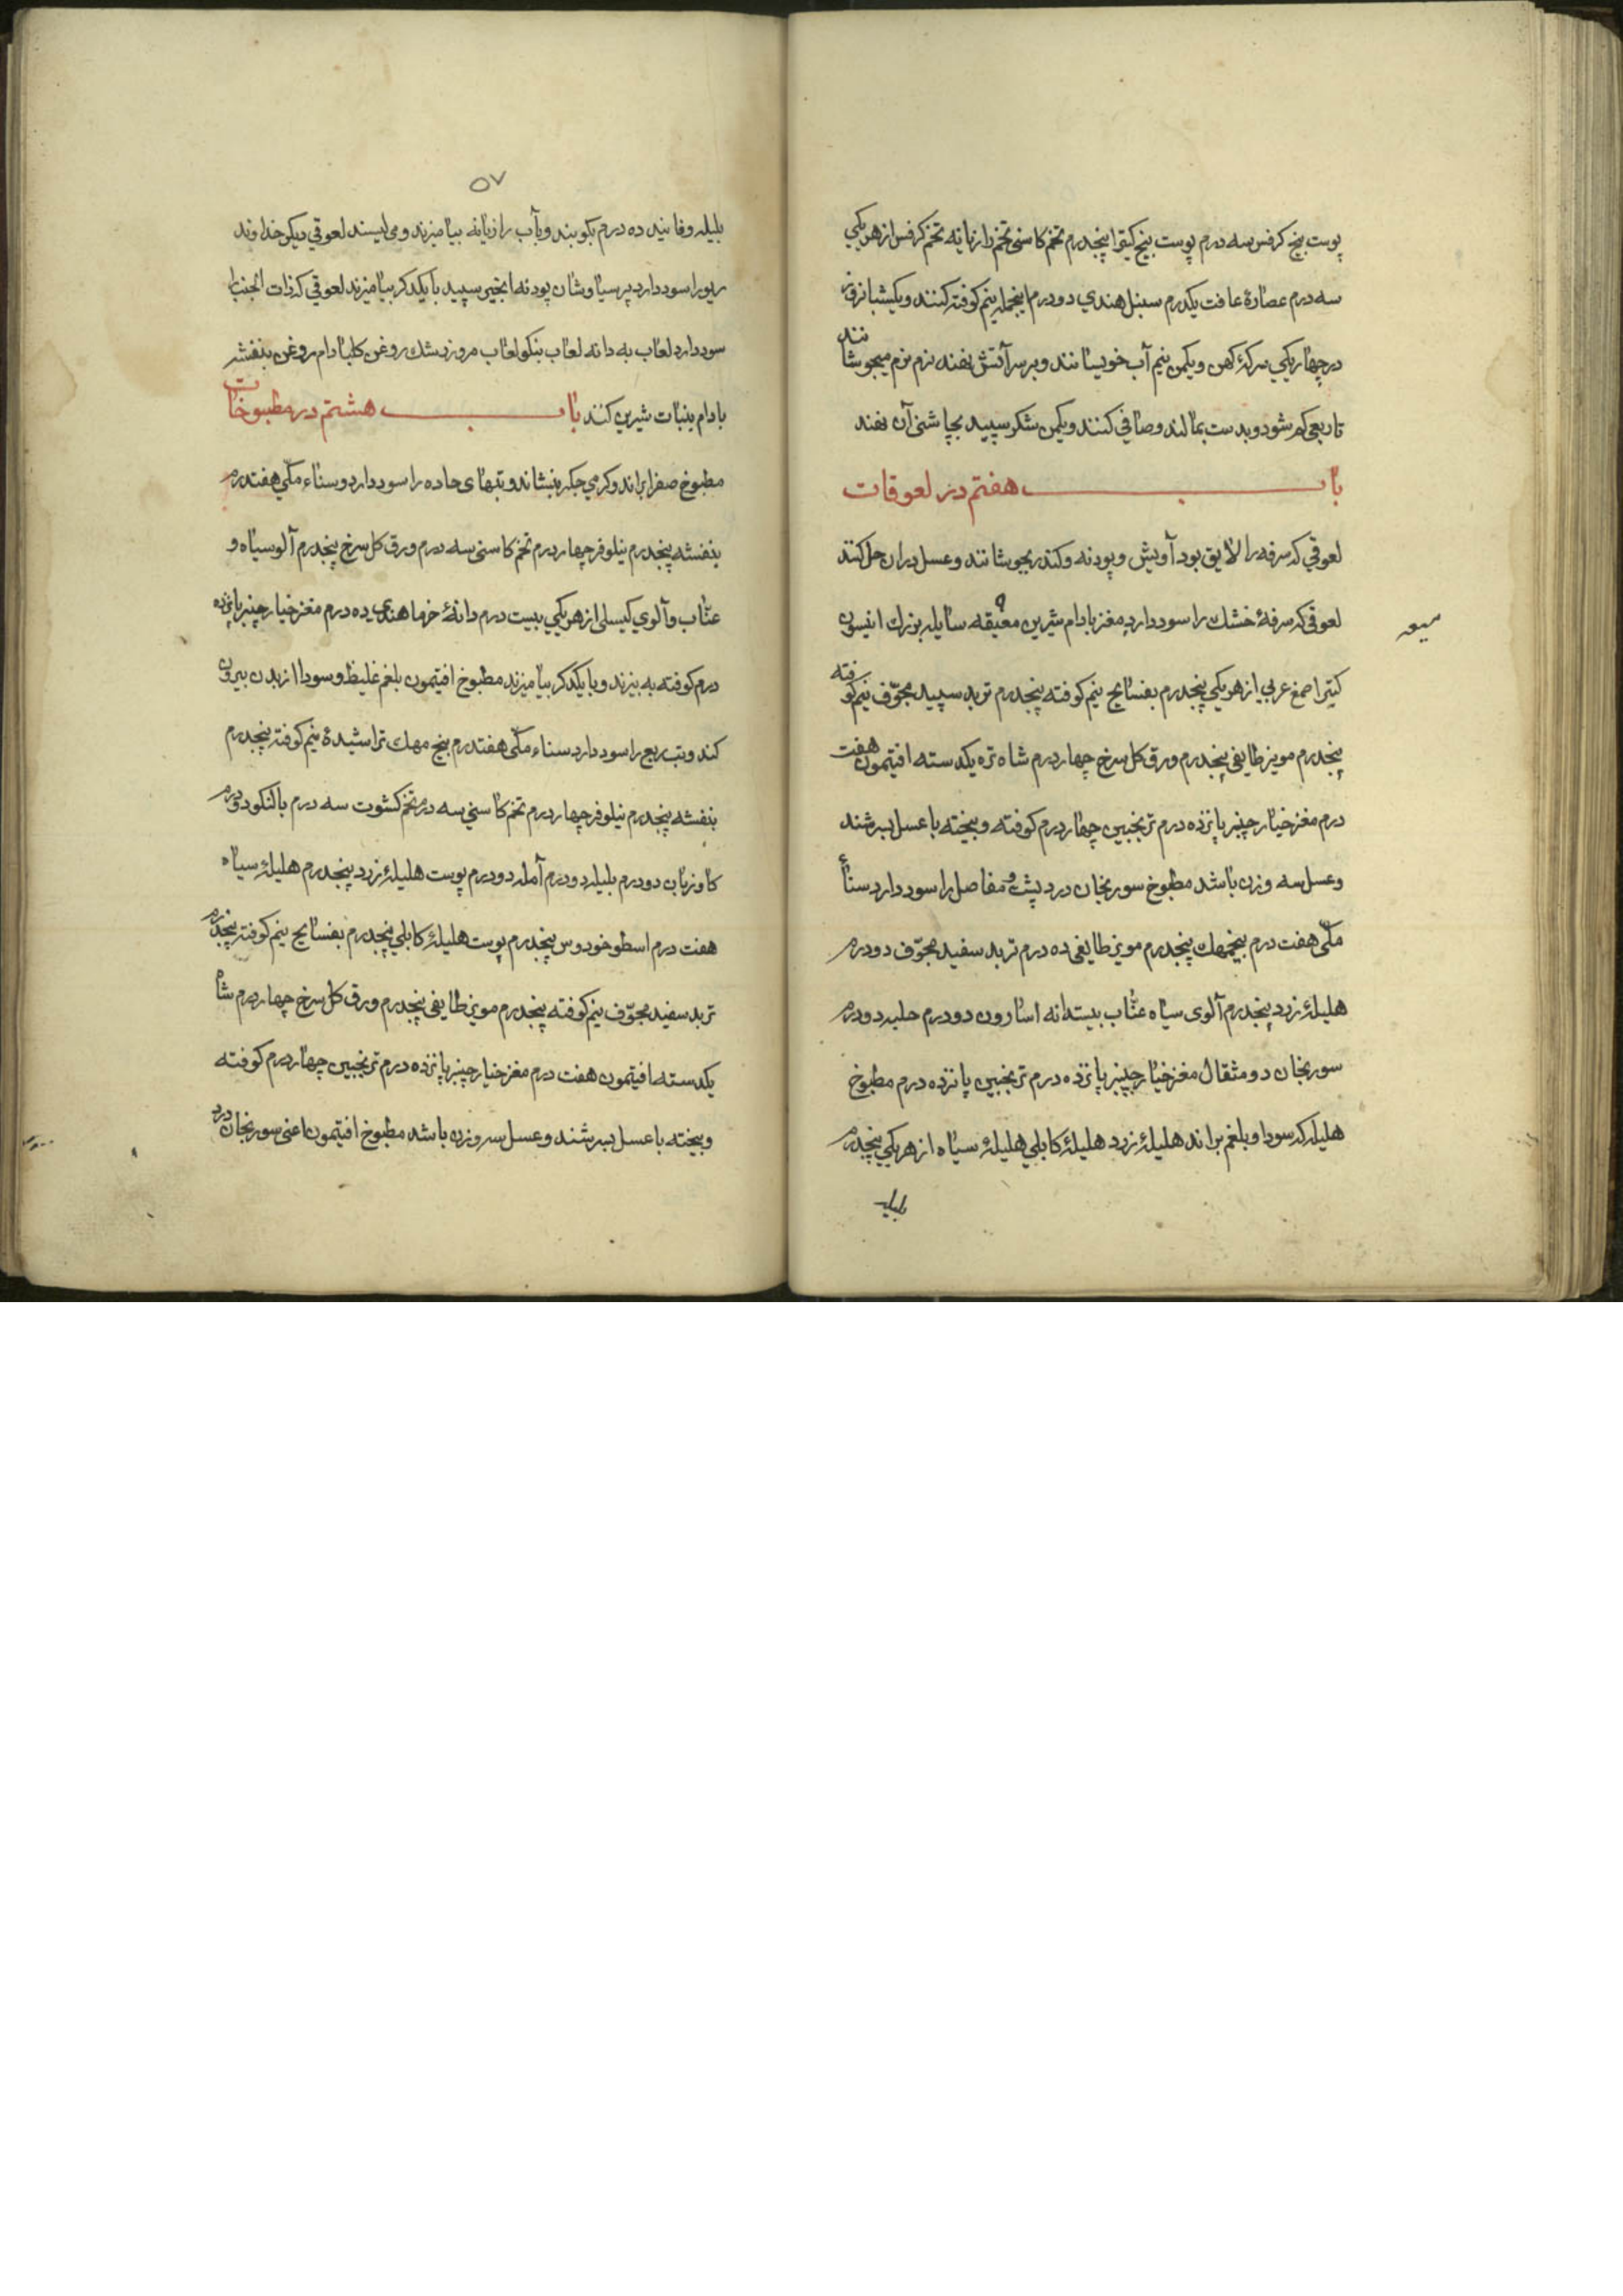 پوست بیخ کرفس سه درم پوست بیخ کیترا پنجدرم تخم کاسنی تخم رازیانه تخم کرفس از هریکی
سه درم عصارهٔ غافت یکدرم سنبل هندی دو درم اینجمله نیم کوفته کنند و یکشبانروز
در چهار یکی سرکهٔ کهن و یکمن نیم آب خویسانند و بر سر آتش نهند نرم نرم میجوشانند
تا ربعی کم شود و بدست بمالند و صافی کنند و یکمن شکر سپید بچاشنی آن نهند
باب هفتم در لعوقات
لعوقی که سرفه را لایق بود آویش و پودنه و کندر بجوشانند و عسل در ان حل کنند
لعوقی که سرفهٔ خشک را سود دارد مغز بادام شیرین معیقه سایله بزرك انیسون
میعه
کتیرا صمغ عربی از هریکی پنجدرم بفسایج نیم کوفته پنجدرم تربد سپید مجوّف نیم کوفته
پنجدرم مویز طایفی پنجدرم ورق کل سرخ چهار درم شاه تره یکدسته افتیمون هفت
درم مغز خیار چنبر پانزده درم ترنجبین چهار درم کوفته و بیخته با عسل بسرشند
و عسل سه وزن باشد مطبوخ سورنجان درد پشت و مفاصل را سود دارد سناء
مکّی هفت درم بیخمهك پنجدرم مویز طایفی ده درم تربد سفید مجوّف دو درم
هلیلهٔ زرد پنجدرم آلوی سیاه عنّاب بیستدانه اسارون دو درم حلبه دو درم
سورنجان دو مثقال مغز خیار چنبر پانزده درم ترنجبین پانزده درم مطبوخ
هلیله که سودا و بلغم براند هلیلهٔ زرد هلیلهٔ کابلی هلیلهٔ سیاه از هریکی پنجدرم
بلیله
۵۷
بلیله و فانید ده درم بکوبند و بآب رازیانه بیامیزند و می لیسند لعوقی دیکر خداوند
ریو را سود دارد پرسیاوشان پودنه انجیر سپید با یکدکر بیامیزند لعوقی که ذات الجنب را
سود دارد لعاب به دانه لعاب بنکو لعاب مرو زرشك روغن کل بادام روغن بنفشه
بادام بنبات شیرین کنند باب هشتم در مطبوخات
مطبوخ صفرا براند و کرمی جکر بنشاند و تبهای حاده را سود دارد و سناء مکّی هفتدرم
بنفشه پنجدرم نیلوفر چهار درم تخم کاسنی سه درم ورق کل سرخ پنجدرم آلو سیاه و
عنّاب و آلوی کیسلی از هریکی بیست درم دانهٔ خرما هندی ده درم مغز خیار چنبر پانزده
درم کوفته به بیزند و با یکدکر بیامیزند مطبوخ افتیمون بلغم غلیظ و سودا از بدن بیرون
کند و تب ربع را سود دارد سناء مکّی هفتدرم بیخ مهك تراشیدهٔ نیم کوفته پنجدرم
بنفشه پنجدرم نیلوفر چهار درم تخم کاسنی سه درم تخم کشوت سه درم بالنکو دو درم
کاوزبان دو درم بلیله دو درم آمله دو درم پوست هلیلهٔ زرد پنجدرم هلیلهٔ سیاه
هفت درم اسطوخودوس پنجدرم پوست هلیلهٔ کابلی پنجدرم بفسایج نیم کوفته پنجدرم
تربد سفید مجوّف نیم کوفته پنجدرم مویز طایفی پنجدرم ورق کل سرخ چهار درم شاه
یکدسته افتیمون هفت درم مغز خیار چنبر پانزده درم ترنجبین چهار درم کوفته
و بیخته با عسل بسرشند و عسل سه وزن باشد مطبوخ افتیمون اعنی سورنجان درد